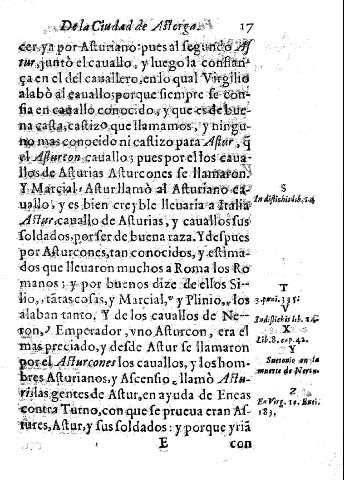 De la Ciudad de Astorga. 17
cer, ya por Asturiano: pues al segundo As-
tur, juntò el cauallo, y luego la confian-
ça en el del cauallero, en lo qual Virgilio
alabò al cauallo; porque siempre se con-
fia en cauallo conocido, y que es de bue-
na casta, castizo que llamamos, y ningu-
no mas conocido ni castizo para Astur, q̃
el Asturcon cauallo; pues por el los caua-
llos de Asturias Asturcones se llamaron.
Y Marcial, Astur llamò al Asturiano ca-
uallo, y es bien creyble lleuaria a Italia
Astur, cauallo de Asturias, y cauallos sus
soldados, por ser de buena raza. Y despues
por Asturcones, tan conocidos, y estima-
dos que lleuaron muchos a Roma los Ro
manos; y por buenos dize de ellos Si-
lio, tãtas cosas, y Marcial, y Plinio, los
alaban tanto. Y de los cauallos de Ne-
ron, Emperador, vno Asturcon, era el
mas preciado, y desde Astur se llamaron
por el Asturcones los cauallos, y los hom-
bres Asturianos, y Ascensio llamò Astu-
ris las gentes de Astur, en ayuda de Eneas
contra Turno, con que se prueua eran As-
tures, Astur, y sus soldados: y porque yriã
E con
S
In distichis lib. 14.
T
3. puni. 335.
V
In distichis lib. 14.
X
Lib. 8. cap. 42.
Y
Suetonio en la
muerte de Neron.
Z
En Virg. 10. Enei.
183.